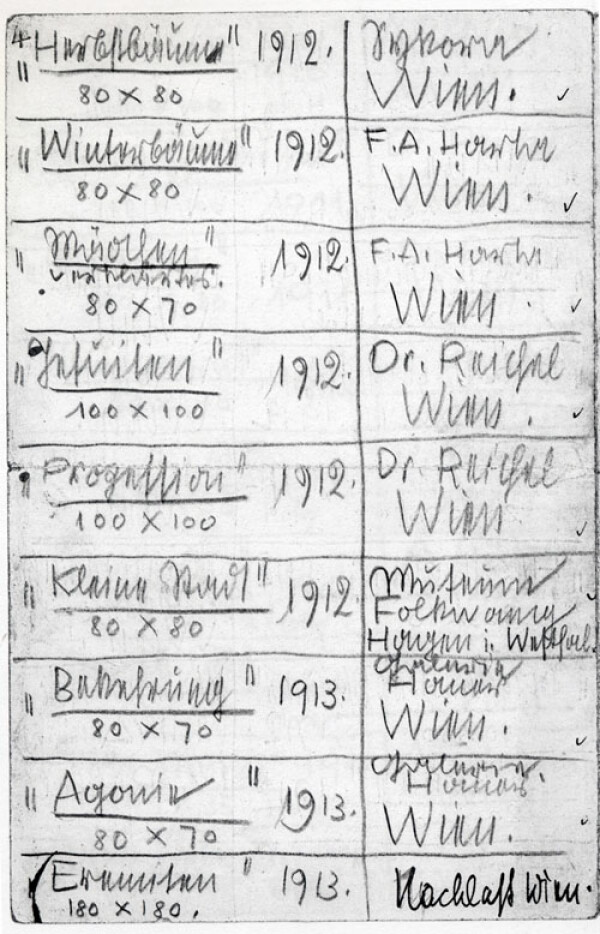 "Herbstbäume" 1912. Sykora
80 × 80 Wien.
"Winterbäume" 1912. F.A. Harta
80 × 80 Wien.
"Mädchen" 1912. F.A. Harta
80 × 70 Wien.
"Jesuiten" 1912. Dr. Reichel
100 × 100 Wien.
"Prozession" 1912. Dr. Reichel
100 × 100 Wien
"Kleine Stadt" 1912. Museum
80 × 80 Folkwang
Hagen i. Westfal.
"Bekehrung" 1913. Galerie
Hauer
80 × 70 Wien.
"Agonie" 1913. Galerie.
Hauer
80 × 70 Wien.
"Eremiten" 1913. Nachlaß Wien.
180 × 180.